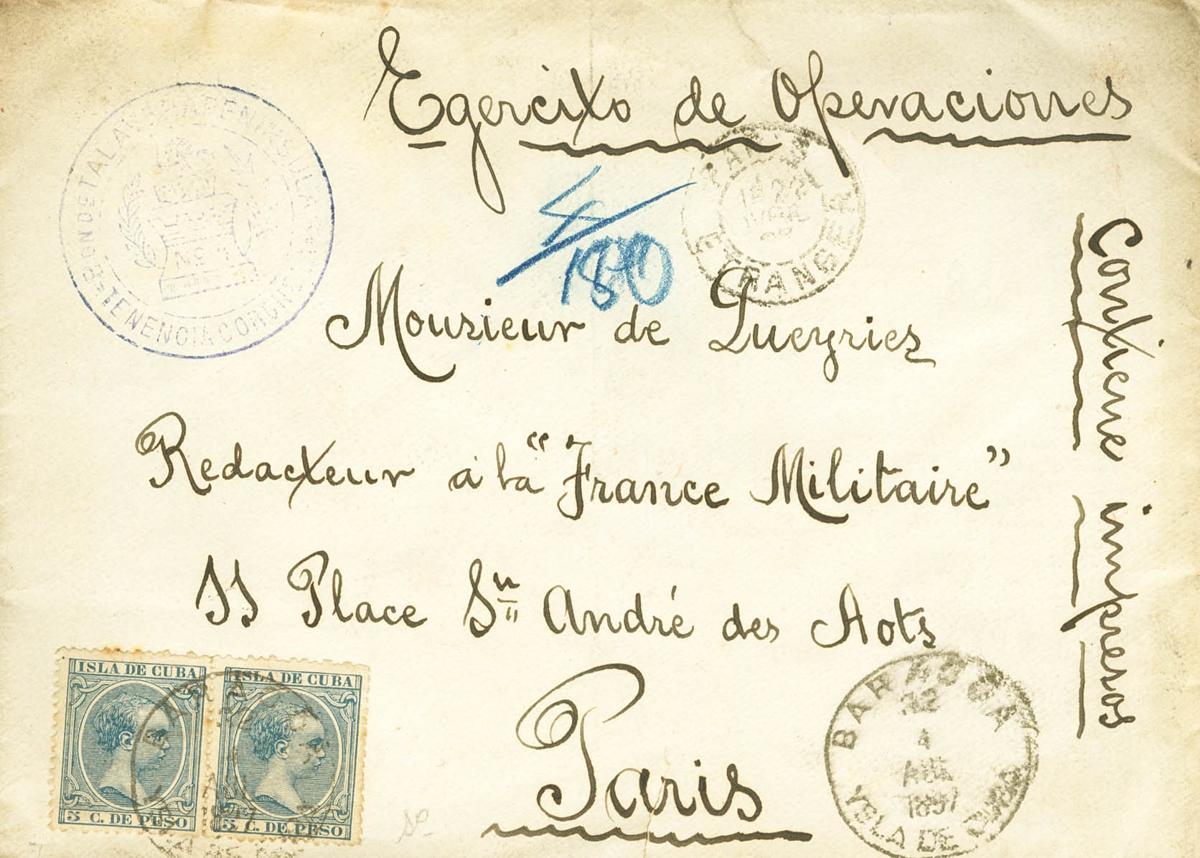 Egercito de Operaciones
BON DE TALAVERA PENINSULAR
TENENCIA CORONEL
4
180
ETRANGER
Mousieur de Lueyriez
Redacteur á la "France Militaire"
11 Place Sn André des Aots
Paris
Contiene impresos
ISLA DE CUBA
5 C. DE PESO
ISLA DE CUBA
5 C. DE PESO
BARACOA
4
1897
YSLA DE CUBA